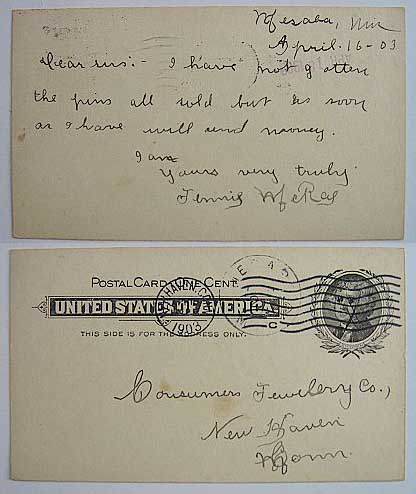 Mesaba, Min
April-16-03
Dear sirs:- I have not gotten
the pins all sold but as soon
as I have will send money.
I am
Yours very truly
Jennie McRae
POSTAL CARD - ONE CENT.
UNITED STATES OF AMERICA.
THIS SIDE IS FOR THE ADDRESS ONLY.
HAVEN, CO
1903
Consumers Jewelery Co.,
New Haven
Conn.